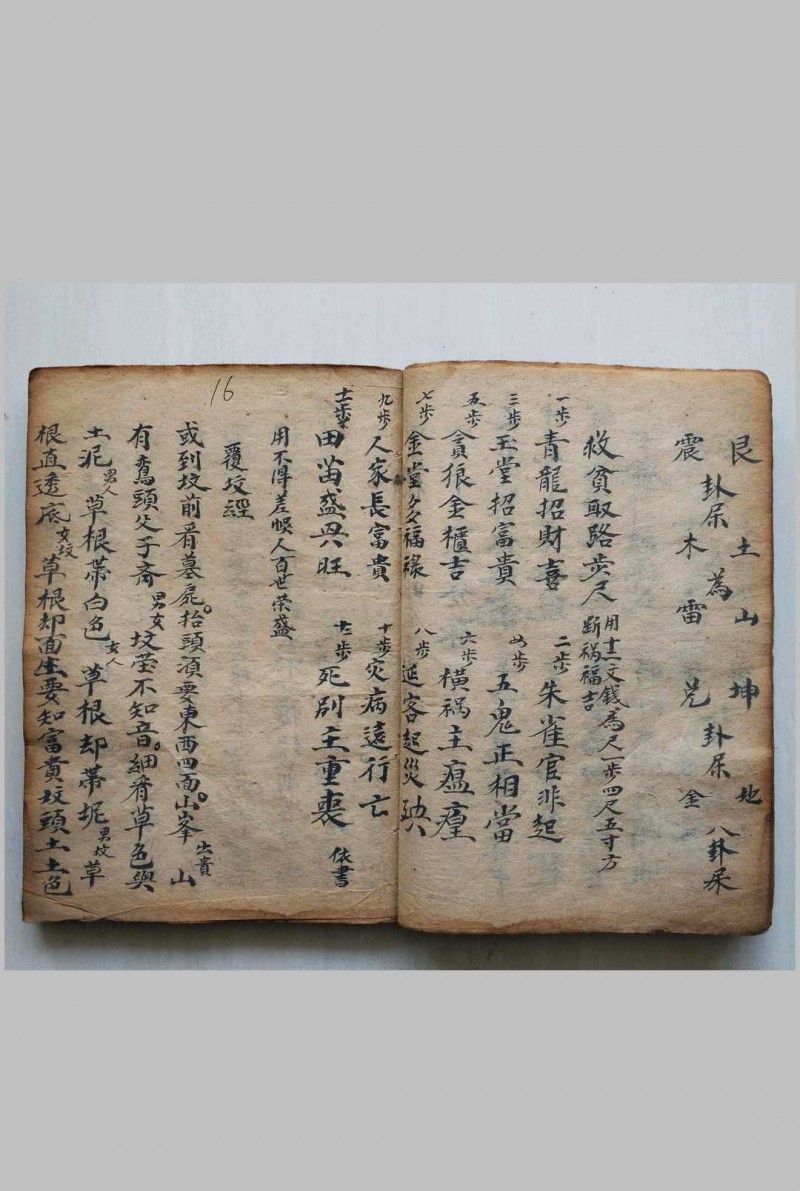 艮土山 坤地
卦屎為 卦屎 八卦屎
震木雷 兑金
救貧取路步尺 用十二文錢為尺一步四尺五寸方
斷禍福吉
一步 青龍招財喜 二步 朱雀官非起
三步 玉堂招富貴 四步 五鬼正相當
五步 貪狼金櫃吉 六步 橫禍主瘟瘽
七步 金堂多福祿 八步 延客起災
九步 人家長富貴 十步 灾病遠行亡
十一步 田苗盛興旺 十二步 死別主重喪 依書
用不得差悮人百世荣盛
16
覆坟經
或到坟前看墓屍抬頭須要東西四面山峯出貴山
有鴦頭父子斎男女坟莹不知音細看草色與
土泥男人草根帶白色女人草根却帶坭男坟草
根直透底女坟草根却面生要知富貴坟頭土土色